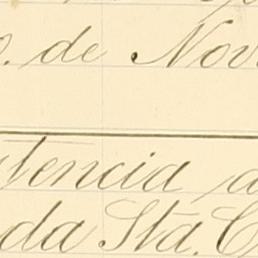 de Nov
tencia
da Sta. C